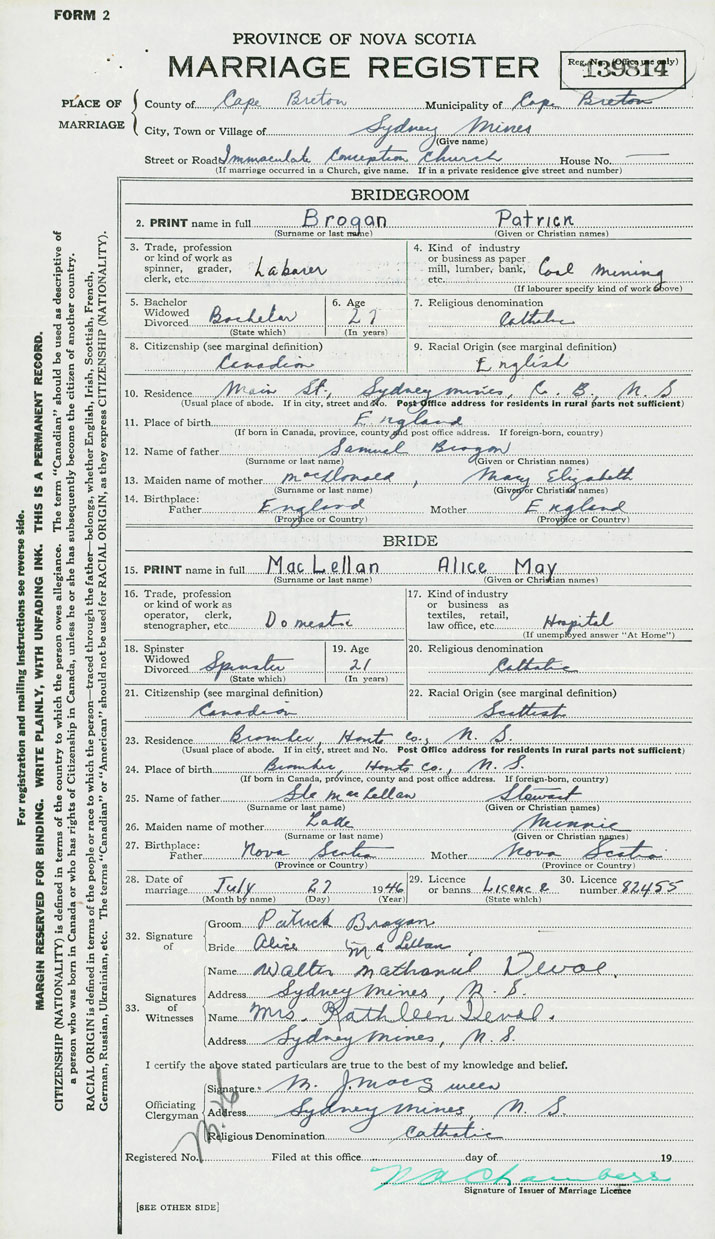 FORM 2
PROVINCE OF NOVA SCOTIA
MARRIAGE REGISTER
Reg. No. (Office use only)
139814
PLACE OF MARRIAGE
County of Cape Breton Municipality of Cape Breton
City, Town or Village of Sydney Mines
(Give name)
Street or Road Immaculate Conception Church House No. —
(If marriage occurred in a Church, give name. If in a private residence give street and number)
BRIDEGROOM
2. PRINT name in full Brogan Patrick
(Surname or last name) (Given or Christian names)
3. Trade, profession or kind of work as spinner, grader, clerk, etc. Laborer
4. Kind of industry or business as paper mill, lumber, bank, etc. Coal Mining
(If labourer specify kind of work above)
5. Bachelor Widowed Divorced Bachelor
(State which)
6. Age 27
(In years)
7. Religious denomination Catholic
8. Citizenship (see marginal definition) Canadian
9. Racial Origin (see marginal definition) English
10. Residence Main St., Sydney Mines, C. B., N. S
(Usual place of abode. If in city, street and No. Post Office address for residents in rural parts not sufficient)
11. Place of birth England
(If born in Canada, province, county and post office address. If foreign-born, country)
12. Name of father Samuel Brogan
(Surname or last name) (Given or Christian names)
13. Maiden name of mother MacDonald, Mary Elizabeth
(Surname or last name) (Given or Christian names)
14. Birthplace: Father England Mother England
(Province or Country) (Province or Country)
BRIDE
15. PRINT name in full MacLellan Alice May
(Surname or last name) (Given or Christian names)
16. Trade, profession or kind of work as operator, clerk, stenographer, etc. Domestic
17. Kind of industry or business as textiles, retail, law office, etc. Hospital
(If unemployed answer "At Home")
18. Spinster Widowed Divorced Spinster
(State which)
19. Age 21
(In years)
20. Religious denomination Catholic
21. Citizenship (see marginal definition) Canadian
22. Racial Origin (see marginal definition) Scottish
23. Residence Hants Co., N. S.
(Usual place of abode. If in city, street and No. Post Office address for residents in rural parts not sufficient)
24. Place of birth Hants Co., N. S.
(If born in Canada, province, county and post office address. If foreign-born, country)
25. Name of father MacLellan Stewart
(Surname or last name) (Given or Christian names)
26. Maiden name of mother Minnie
(Surname or last name) (Given or Christian names)
27. Birthplace: Father Nova Scotia Mother Nova Scotia
(Province or Country) (Province or Country)
28. Date of marriage July 27 1946
(Month by name) (Day) (Year)
29. Licence or banns Licence
(State which)
30. Licence number 82455
32. Signature of
Groom Patrick Brogan
Bride Alice McLellan
33. Signatures of Witnesses
Name Walter Nathaniel Deval.
Address Sydney Mines, N. S.
Name Mrs. Kathleen Deval.
Address Sydney Mines, N. S.
I certify the above stated particulars are true to the best of my knowledge and belief.
Officiating Clergyman
Signature M. J.
Address Sydney Mines, N. S.
Religious Denomination Catholic
Registered No. Filed at this office day of 19
Chambers
Signature of Issuer of Marriage Licence
[SEE OTHER SIDE]
For registration and mailing instructions see reverse side.
MARGIN RESERVED FOR BINDING. WRITE PLAINLY, WITH UNFADING INK. THIS IS A PERMANENT RECORD.
CITIZENSHIP (NATIONALITY) is defined in terms of the country to which the person owes allegiance. The term "Canadian" should be used as descriptive of
a person who was born in Canada or who has rights of Citizenship in Canada, unless he or she has subsequently become the citizen of another country.
RACIAL ORIGIN is defined in terms of the people or race to which the person—traced through the father—belongs, whether English, Irish, Scottish, French,
German, Russian, Ukrainian, etc. The terms "Canadian" or "American" should not be used for RACIAL ORIGIN, as they express CITIZENSHIP (NATIONALITY).